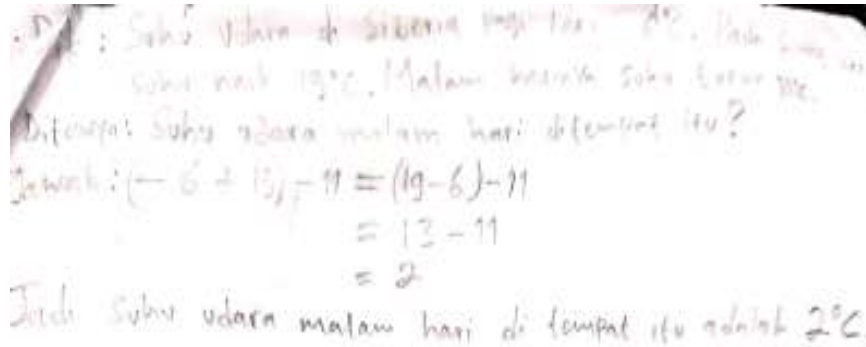 : Suhu udara di Siberia pagi hari
suhu naik 19°C. Malam harinya suhu turun
Ditanya: Suhu udara malam hari ditempat itu?
Jawab: (- 6 + 19) - 11 = (19-6)-11
= 13 - 11
= 2
Jadi suhu udara malam hari di tempat itu adalah 2°C